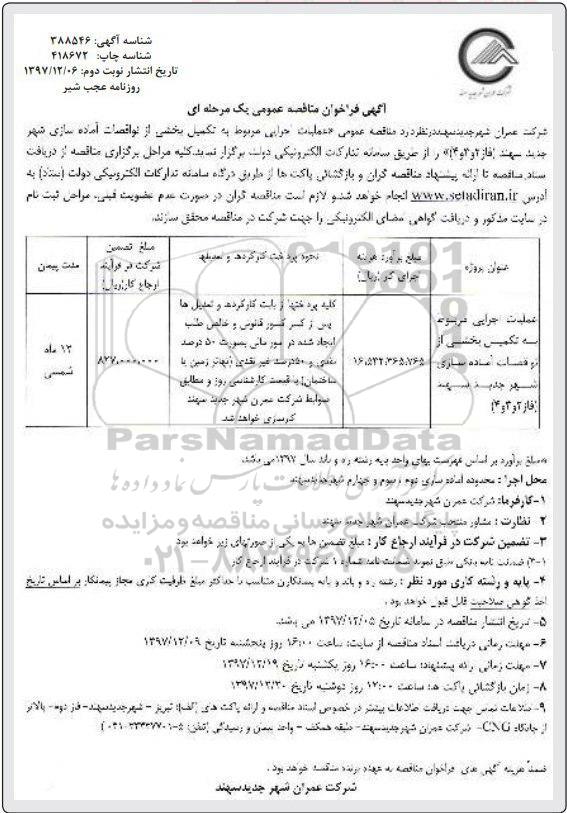 شناسه آگهی: ۳۸۸۵۴۶
شناسه چاپ: ۴۱۸۶۷۲
تاریخ انتشار نوبت دوم: ۱۳۹۷/۱۲/۰۶
روزنامه عجب شیر
آگهی فراخوان مناقصه عمومی یک مرحله ای
شرکت عمران شهرجدیدسهنددرنظردارد مناقصه عمومی «عملیات اجرایی مربوط به تکمیل بخشی از نواقصات آماده سازی شهر
جدید سهند (فاز۲و۳و۴)» را از طریق سامانه تدارکات الکترونیکی دولت برگزار نماید.کلیه مراحل برگزاری مناقصه از دریافت
اسناد مناقصه تا ارائه پیشنهاد مناقصه گران و بازگشائی پاکت ها از طریق درگاه سامانه تدارکات الکترونیکی دولت (ستاد) به
آدرس www.setadiran.ir انجام خواهد شد.و لازم است مناقصه گران در صورت عدم عضویت قبلی، مراحل ثبت نام
در سایت مذکور و دریافت گواهی امضای الکترونیکی را جهت شرکت در مناقصه محقق سازند.
عنوان پروژه
مبلغ برآورد هزینه اجرای کار(ریال)
نحوه پرداخت کارکردها و تعدیلها
مبلغ تضمین شرکت در فرآیند ارجاع کار(ریال)
مدت پیمان
عملیات اجرایی مربوط
به تکمیل بخشی از
نواقصات آماده سازی
شهر جدید سهند
(فاز۲و۳و۴)
۱۶,۵۳۲,۳۶۵,۷۶۵
کلیه پرداختها از بابت کارکردها و تعدیل ها
پس از کسر کسور قانونی و خالص طلب
ایجاد شده در امور مالی بصورت ۵۰ درصد
نقدی و ۵۰درصد غیر نقدی (تهاتر زمین یا
ساختمان) با قیمت کارشناسی روز و مطابق
ضوابط شرکت عمران شهر جدید سهند
کارسازی خواهد شد.
۸۲۷,۰۰۰,۰۰۰
۱۲ ماه
شمسی
ParsNamadData
پایگاه اطلاع رسانی مناقصه و مزایده
*مبلغ برآورد بر اساس فهرست بهای واحد پایه رشته راه و باند سال ۱۳۹۷می باشد.
محل اجرا : محدوده آماده سازی دوم ، سوم و چهارم شهرجدیدسهند
۱-کارفرما: شرکت عمران شهرجدیدسهند
۲- نظارت : مشاور منتخب شرکت عمران شهر جدید سهند
۳- تضمین شرکت در فرآیند ارجاع کار : مبلغ تضمین ها به یکی از صورتهای زیر خواهد بود
۳-۱) ضمانت نامه بانکی طبق نمونه ضمانت نامه شماره ۱ شرکت در فرآیند ارجاع کار
۴- پایه و رشته کاری مورد نظر : رشته راه و باند و پایه پیمانکاران متناسب با حداکثر مبلغ ظرفیت کاری مجاز پیمانکار بر اساس تاریخ
اخذ گواهی صلاحیت قابل قبول خواهد بود .
۵- تاریخ انتشار مناقصه در سامانه تاریخ ۱۳۹۷/۱۲/۰۵ می باشد.
۶- مهلت زمانی دریافت اسناد مناقصه از سایت: ساعت ۱۶:۰۰ روز پنجشنبه تاریخ ۱۳۹۷/۱۲/۰۹
۷- مهلت زمانی ارائه پیشنهاد: ساعت ۱۶:۰۰ روز یکشنبه تاریخ ۱۳۹۷/۱۲/۱۹
۸- زمان بازگشائی پاکت ها: ساعت ۱۲:۰۰ روز دوشنبه تاریخ ۱۳۹۷/۱۲/۲۰
۹- اطلاعات تماس جهت دریافت اطلاعات بیشتر در خصوص اسناد مناقصه و ارائه پاکت های (الف): تبریز - شهرجدیدسهند- فاز دوم- بالاتر
از جایگاه CNG- شرکت عمران شهرجدیدسهند- طبقه همکف - واحد پیمان و رسیدگی (تلفن: ۵-۳۳۴۳۷۷۰۱-۰۴۱)
ضمناً هزینه آگهی های فراخوان مناقصه به عهده برنده مناقصه خواهد بود .
شرکت عمران شهر جدیدسهند